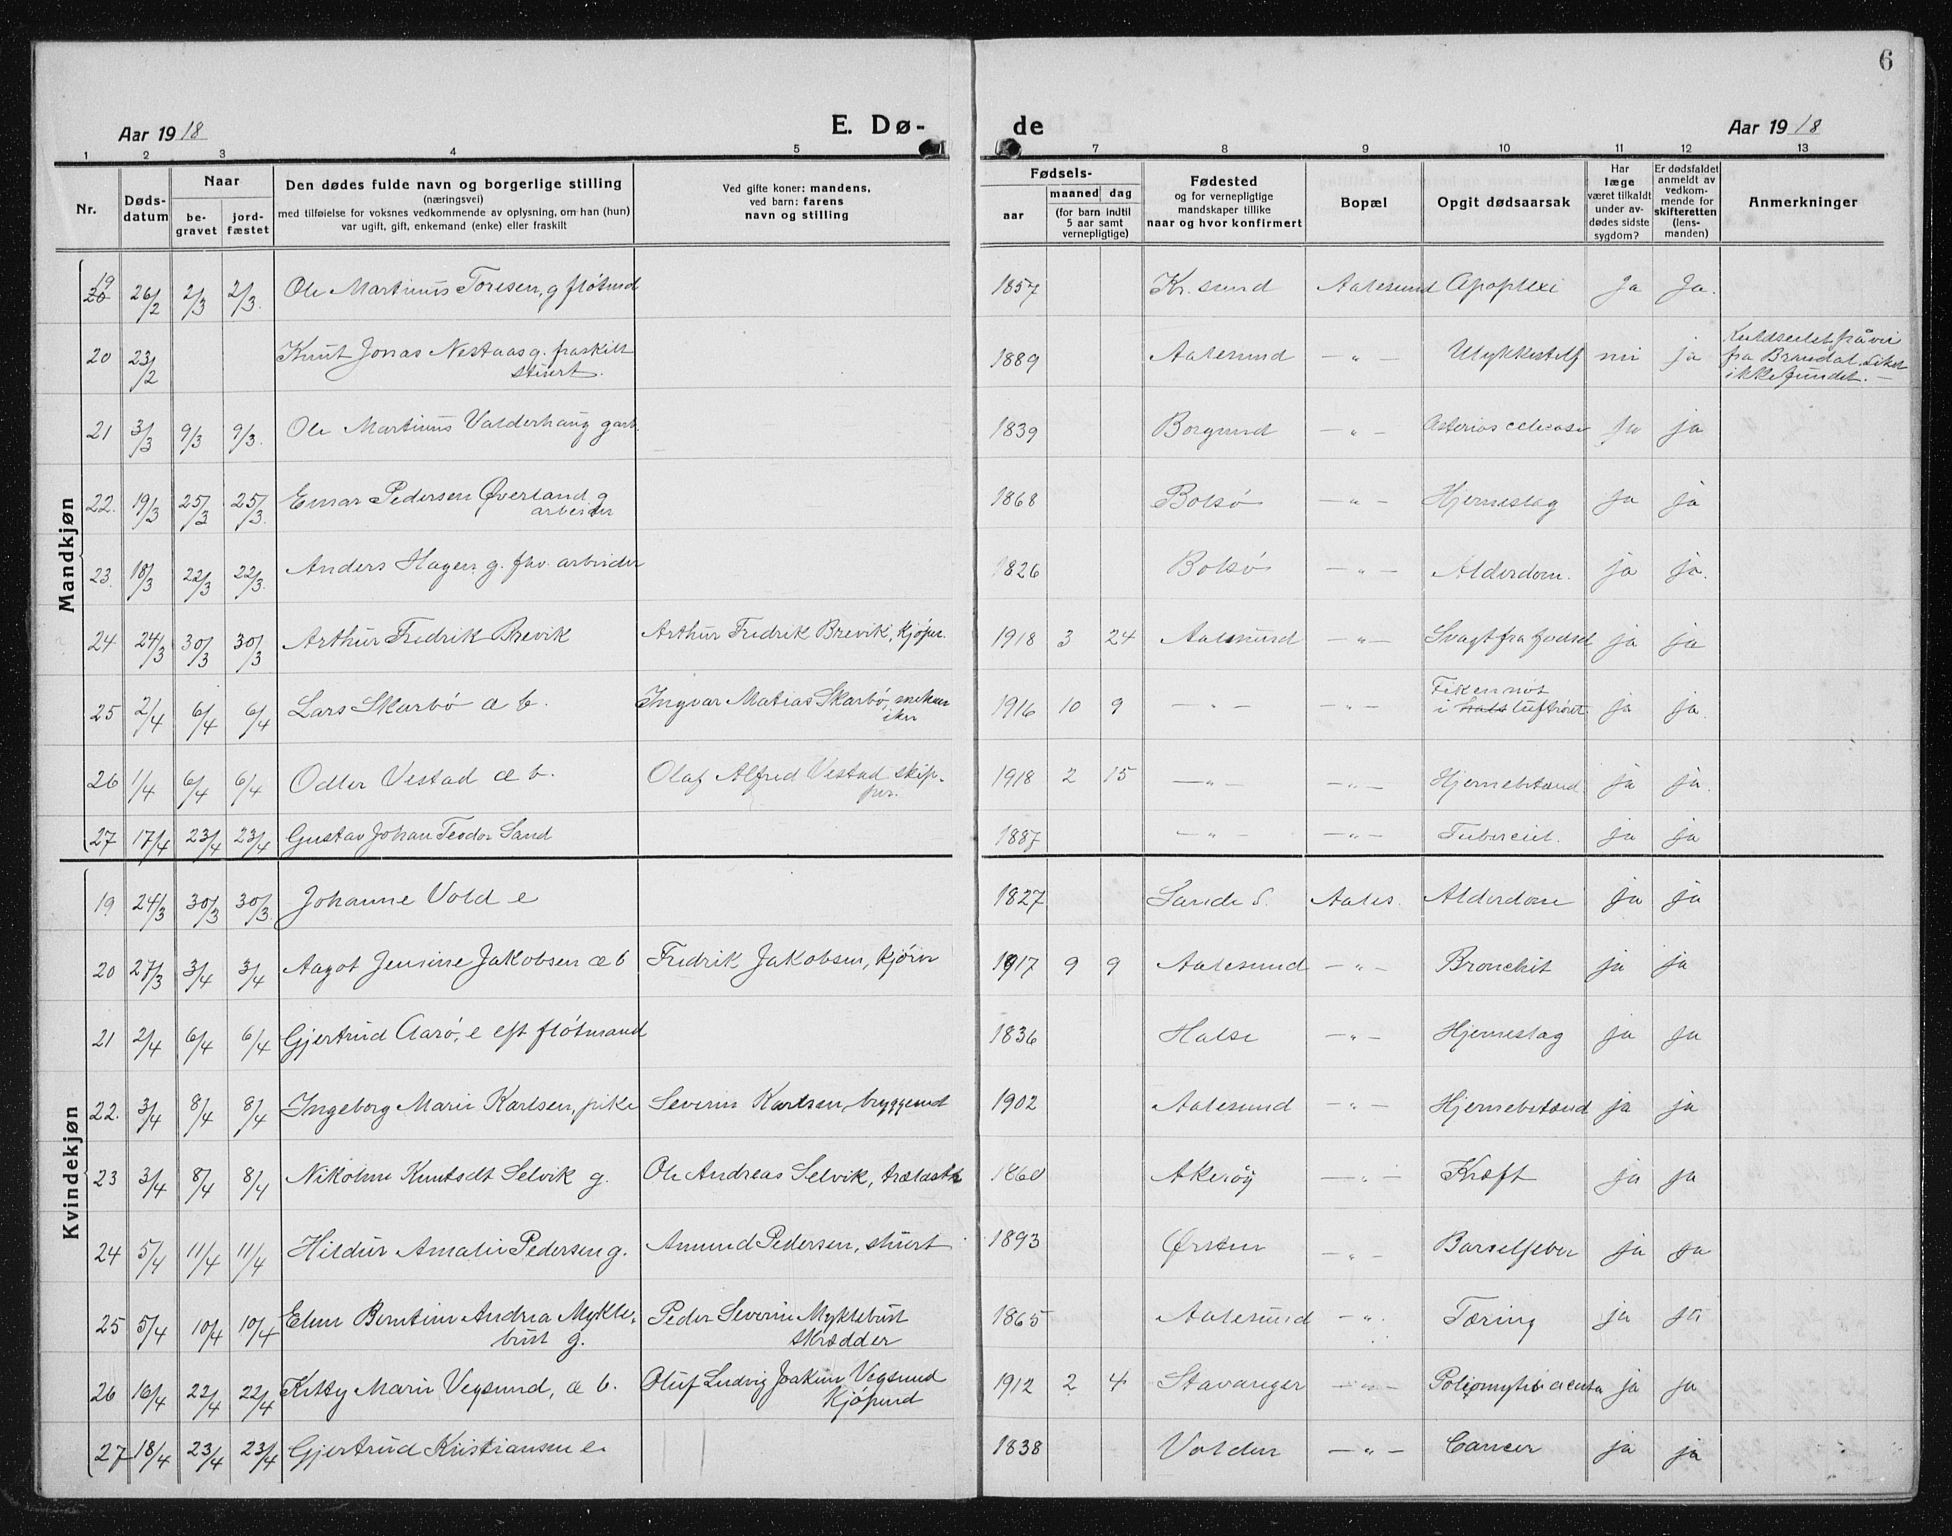 6
Aar 1918
E. Dø-
de
Aar 1918
1 2 3 4 5 7 8 9 10 11 12 13
Nr.
Døds-
datum
Naar
be-
gravet
jord-
fæstet
Den dødes fulde navn og borgerlige stilling
(næringsvei)
med tilføielse for voksnes vedkommende av oplysning, om han (hun)
var ugift, gift, enkemand (enke) eller fraskilt
Ved gifte koner: mandens,
ved barn: farens
navn og stilling
Fødsels-
aar
maaned dag
(for barn indtil
5 aar samt
vernepligtige)
Fødested
og for vernepligtige
mandskaper tillike
naar og hvor konfirmert
Bopæl
Opgit dødsaarsak
Har
læge
været tilkaldt
under av-
dødes sidste
sygdom?
Er dødsfaldet
anmeldt av
vedkom-
mende for
skifteretten
(lens-
manden)
Anmerkninger
Mandkjøn
19 20 26/2 2/3 2/3. Ole Martinus Toresen, g fløtmd 1857 Kr. sund Aalesund Apoplexi Ja Ja.
20 23/2 Knut Jonas Nestaas g. fraskilt stuert. 1889 Aalesund — " — Ulykkestilf nei ja Kuldseilet på vei fra Brandal. Liket ikke fundet. —
21 3/3 9/3 9/3. Ole Martinus Valderhaug g arb. 1839 Borgund — " — ja ja
22. 19/3 25/3 25/3. Einar Pedersen Øverland g arbeider 1868 Bolsø — " — Hjerneslag ja ja
23. 18/3 22/3 22/3. Anders Hagen g. fhv. arbeider 1826 Bolsø — " — Alderdom. ja ja.
24 24/3 30/3 30/3 Arthur Fredrik Brevik Arthur Fredrik Brevik, kjøper. 1918 3 24 Aalesund — " — Svagt fra fødsel ja ja
25 2/4 6/4 6/4 Lars Skarbø æ b. Ingvar Matias Skarbø, mekaniker 1916 10 9 — " — — " — i hals luftrøret. ja ja.
26 1/4 6/4 6/4 Odler Vestad æ b. Olaf Alfred Vestad skip-per. 1918 2 15 — " — — " — Hjernebetænd. ja ja.
27 17/4 23/4 23/4 Gustav Johan Teodor Sand 1887 — " — — " — Tubercul. ja ja
Kvindekjøn
19 24/3 30/3 30/3 Johanne Vold e 1827 Sande S. Aales. Alderdom ja ja
20 27/3 3/4 3/4 Aagot Jensine Jakobsen æ b Fredrik Jakobsen, kjører 1917 9 9 Aalesund — " — Bronchit ja ja
21 2/4 6/4 6/4 Gjertrud Aarø, e eft fløtmand 1836 Halse — " — Hjerneslag ja ja
22. 3/4 8/4 8/4 Ingeborg Marie Karlsen, pike Severin Karlsen, bryggemd 1902 Aalesund — " — Hjernebetænd ja ja
23 3/4 8/4 8/4 Nikoline Knutsdt Selvik g. Ole Andreas Selvik, trælasth 1860 Akerøy — " — Kræft ja ja
24 5/4 11/4 11/4 Hildur Amalie Pedersen g. Amund Pedersen, stuert 1893 Ørsten — " — Barselfeber ja ja
25 5/4 10/4 10/4 Elen Berntine Andrea Mykle-bust g. Peder Severin Myklebust skrædder 1865 Aalesund — " Tæring ja ja
26 16/4 22/4 22/4 Kitty Marie Vegsund, æ b. Oluf Ludvig Joakim Vegsund kjøpmd 1912 2 4 Stavanger — " — ja ja
27 18/4 23/4 23/4 Gjertrud Kristiansen e. 1838 Volden — " — Cancer ja ja